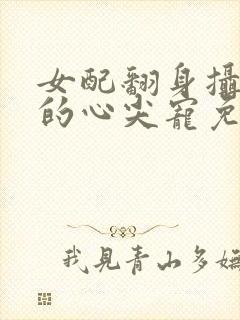 女配翻身攝
的心尖寵免
我見青山多嫵